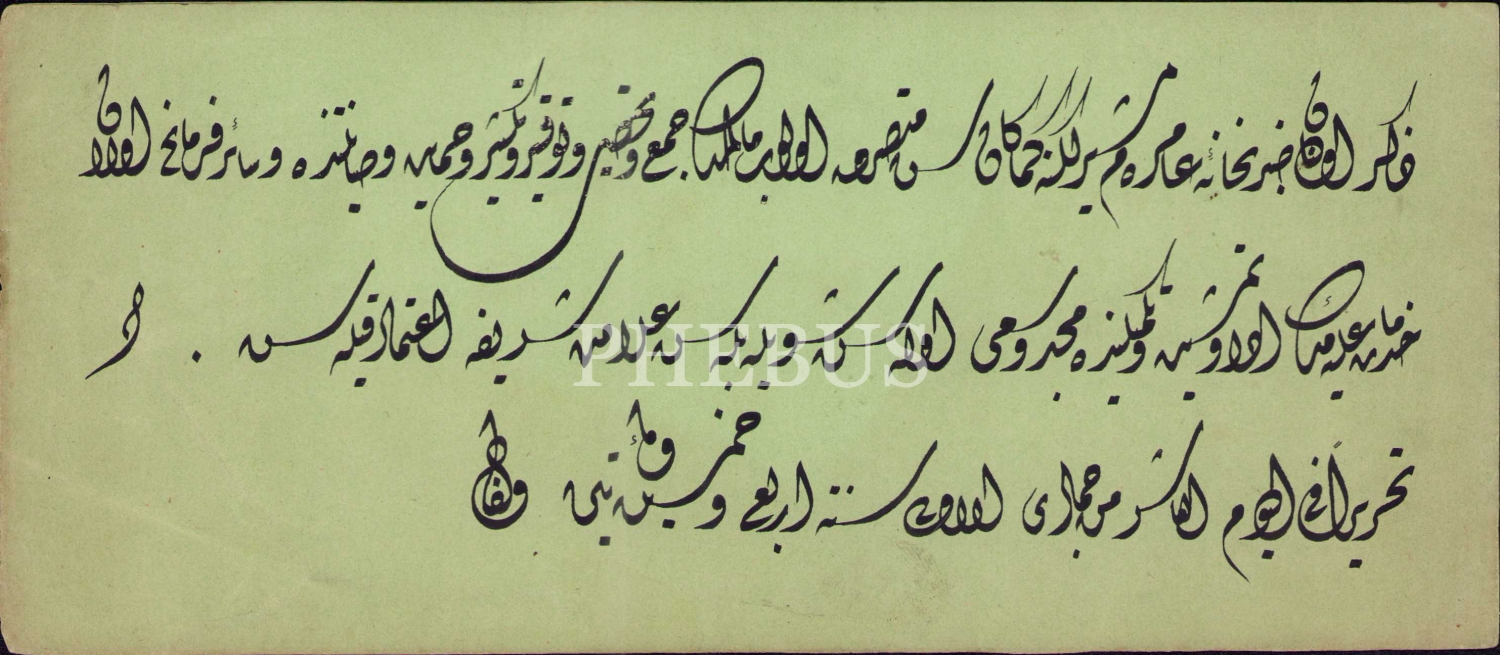 ذكر اولنان ضربخانه عامره م مشيرلكنه كماكان سن متصرف اولوب مالمك جمع وتحصيل وتوقير وتكثير وحمايت وصيانتنده وسائر فرمانم اولان
خدمات عليه مك ادا وتمشيت وتكميلنده مجد وساعى اوله سن شويله بيله سن علامت شريفه اعتماد قيله سن
تحريراً فى اليوم العاشر من جمادى الاولى سنة اربع وخمسين ومائتين والف
PHEBUS